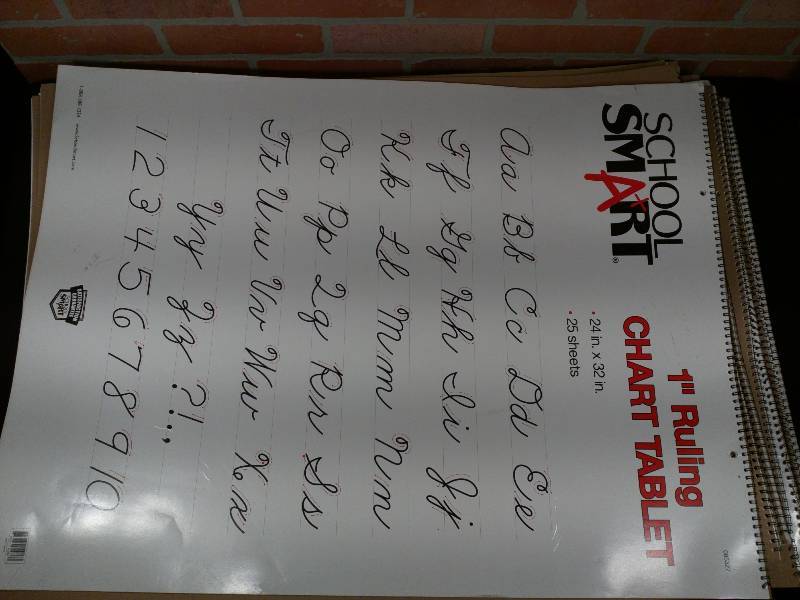 SCHOOL
SMART®
1" Ruling
CHART TABLET
• 24 in. x 32 in.
• 25 sheets
Aa Bb Cc Dd Ee
Ff Gg Hh Ii Jj
Kk Ll Mm Nn
Oo Pp Qq Rr Ss
Tt Uu Vv Ww Xx
Yy Zz ?!.,
1 2 3 4 5 6 7 8 9 10